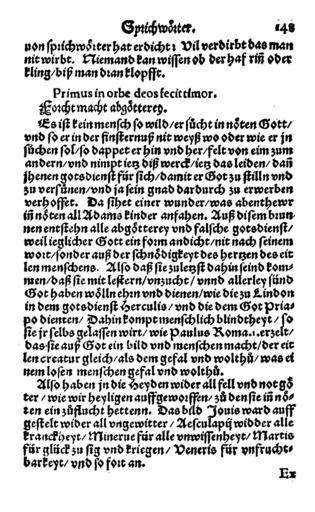 Sprichwörter. 148
von sprichwörter hat erdicht: Vil verdirbt das man
nit wirbt. Niemand kan wissen ob der haf rin̄ oder
kling/ biß man dran klopfft.
Primus in orbe deos fecit timor.
Forcht macht abgötterey.
Es ist kein mensch so wild/ er sücht in nöten Gott/
vnd so er in der finsternuß nit weyß wo oder wie er jn
süchen sol/ so dappet er hin vnd her/ felt von eim zum
andern/ vnd nimpt ietz diß werck/ ietz das leiden/ dan̄
jhenen gotsdienst für sich/ damit er Got zu stilln vnd
zu versünen/ vnd ja sein gnad dardurch zu erwerben
verhoffet. Da sihet einer wunder/ was abenthewr
in̄ nöten all Adams kinder anfahen. Auß disem brun
nen entstehn alle abgötterey vnd falsche gotsdienst/
weil ieglicher Gott ein form andicht/ nit nach seinem
wort/ sonder auß der schnödigkeyt des hertzen des eit
len menschens. Also daß sie zuletzst dahin seind kom-
men/ daß sie mit lestern/ vnzucht/ vnnd allerley sünd
Got haben wölln ehrn vnd dienen/ wie die zu Lindon
in dem gotsdienst Herculis/ vnd die dem Got Pria
po dienten/ Dahin kompt menschlich blindtheyt/ so
sie jr selbs gelassen wirt/ wie Paulus Roma. erzelt/
das sie auß Got ein bild vnd menschen macht/ der eit
len creatur gleich/ als dem gefal vnd wolthü/ was ei
nem losen menschen gefal vnd wolthü.
Also haben jn die Heyden wider all fell vnd not gö
ter/ wie wir heyligen auffgeworffen/ zu den sie in̄ nö-
ten ein zuflucht hettenn. Das bild Jouis ward auff
gestelt wider all vngewitter/ Aesculapij widder alle
kranckheyt/ Minerue für alle vnwissenheyt/ Martis
für glück zu sig vnd kriegen/ Veneris für vnfrucht-
barkeyt/ vnd so fort an.
Ex